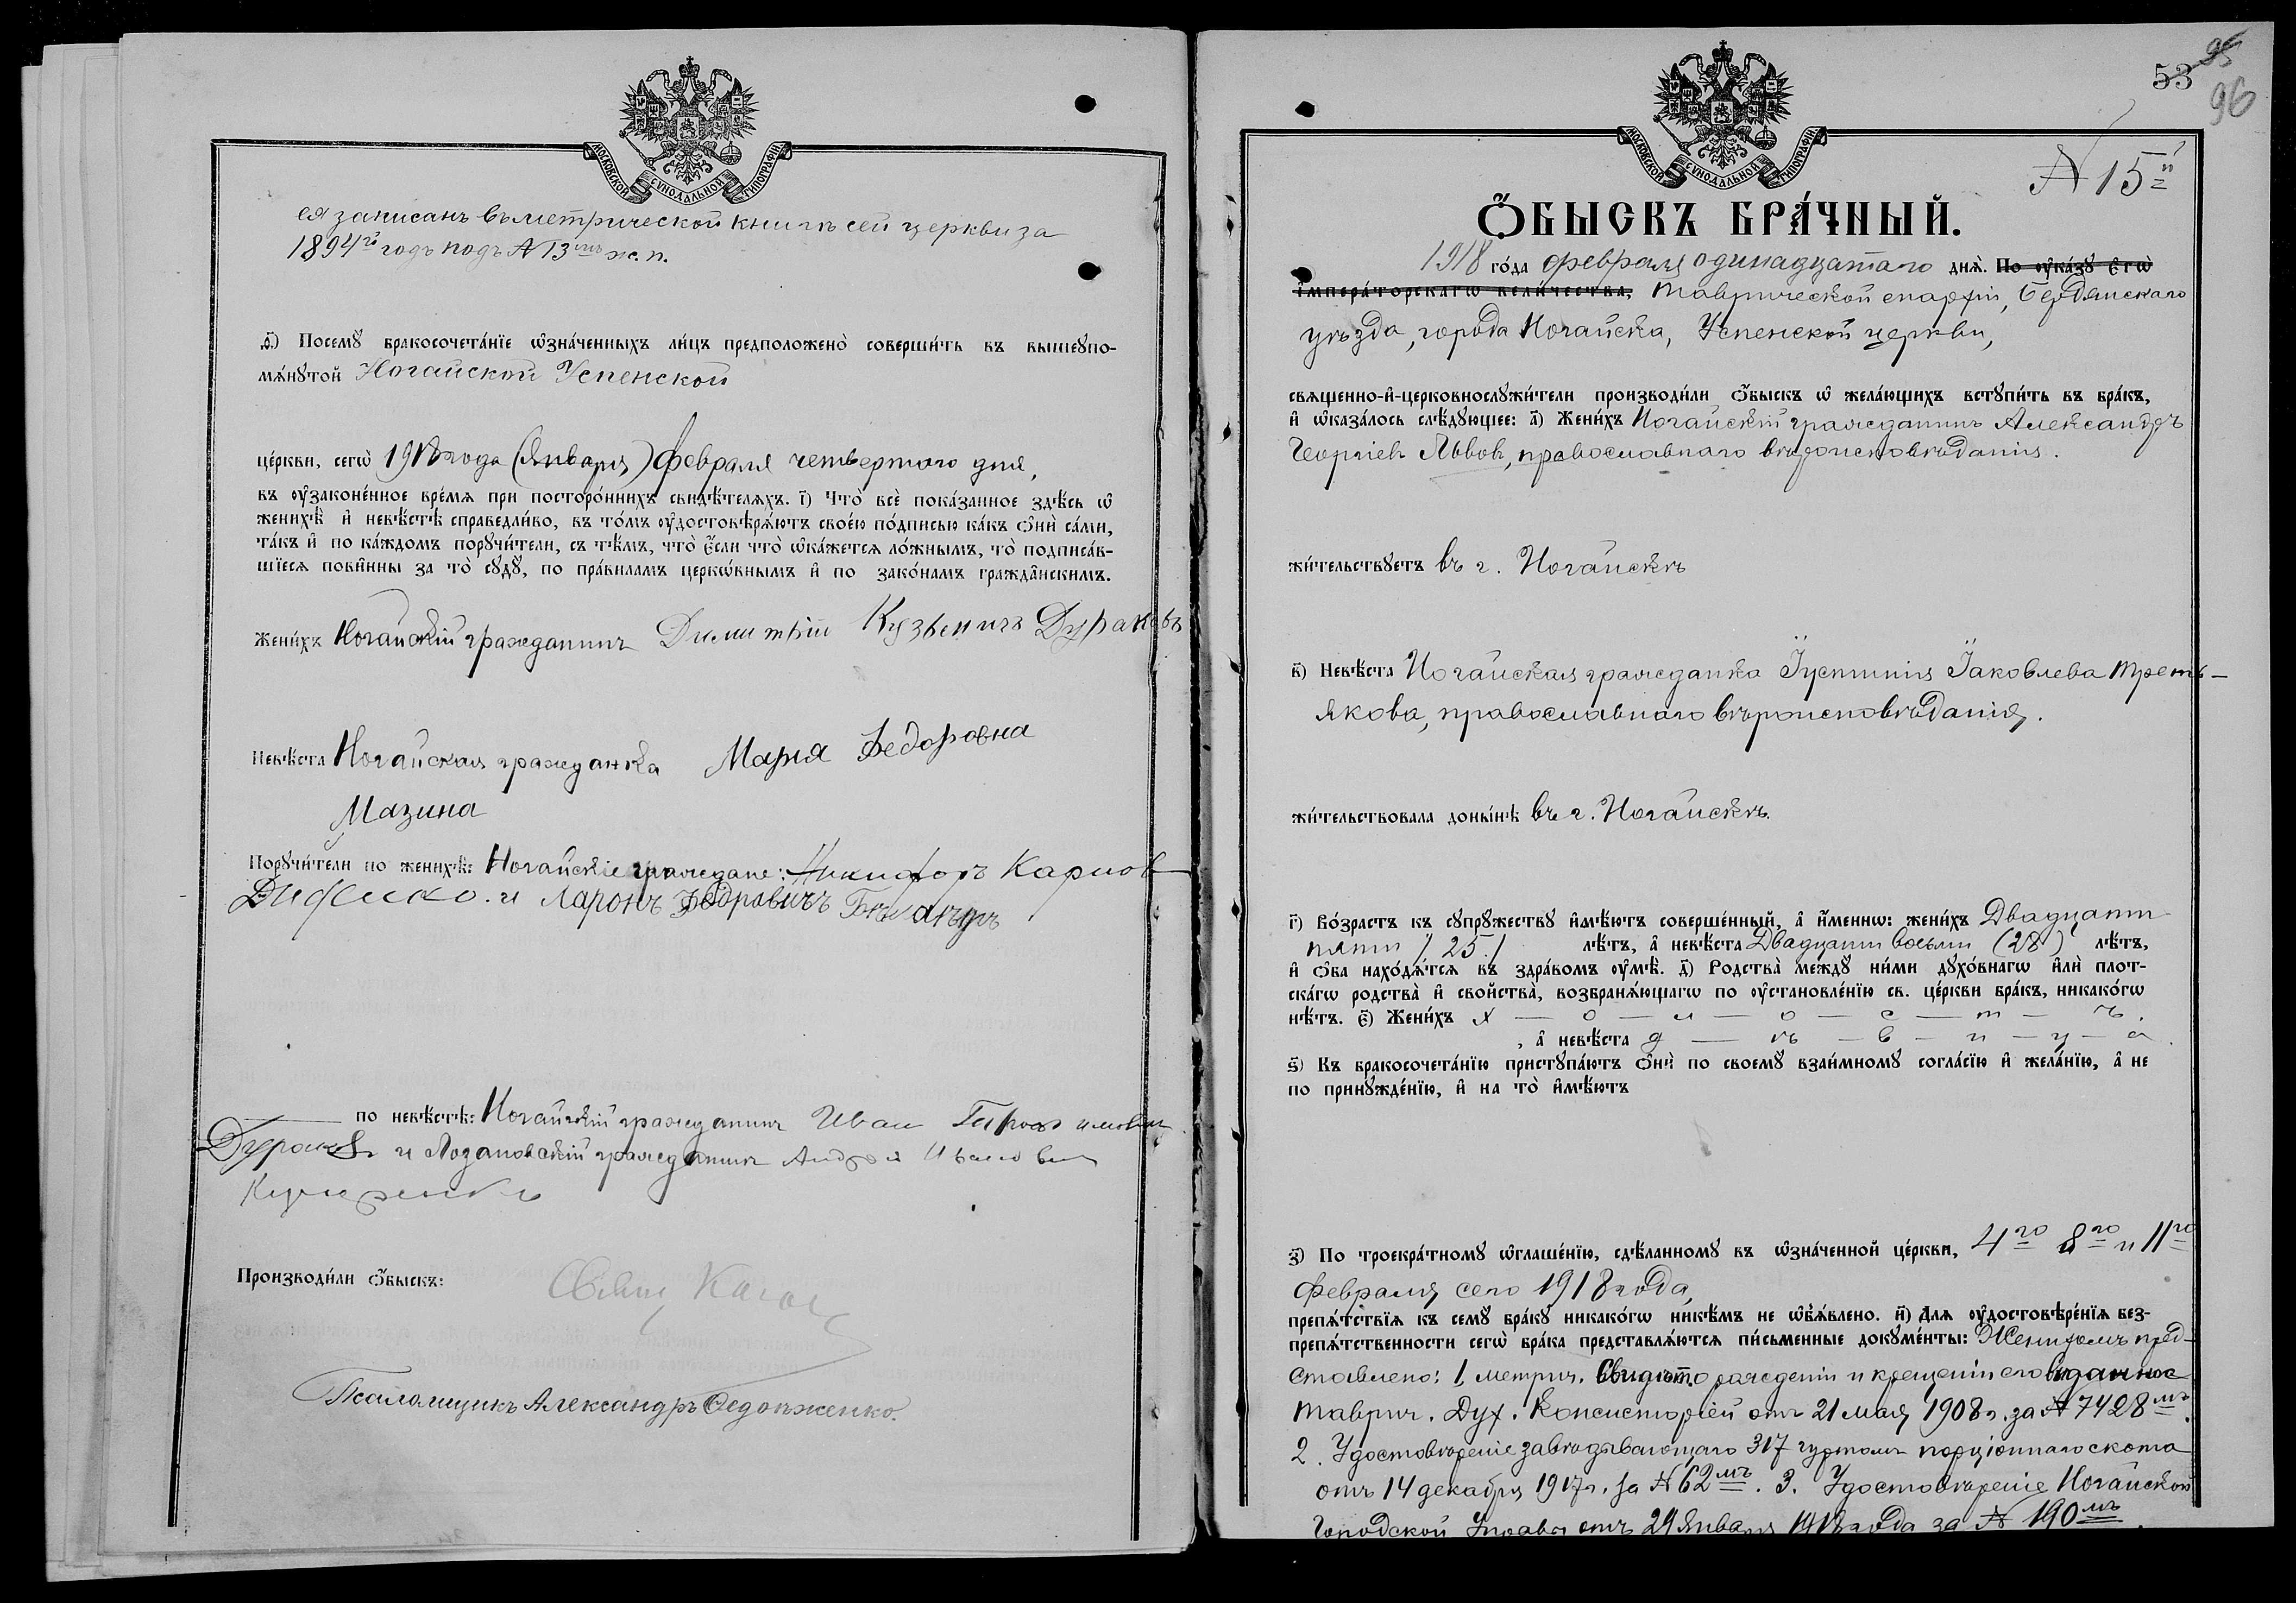 МОСКОВСКОЙ СѴНОДАЛЬНОЙ ТИПОГРАФІИ
ея записанъ въ метрической книгѣ сей церкви за
1894й годъ подъ № 13мъ ж. п.
ѳ҃) Посемꙋ̀ бракосочета́нїе ѡ҆зна́ченныхъ ли́цъ предположено̀ соверши́ть въ вышеꙋпо-
мѧ́нꙋтой Ногайской Успенской
це́ркви, сегѡ̀ 1918 года (Января) февраля четвертого дня,
въ ᲂу҆законе́нное вре́мѧ при посторо́ннихъ свидѣ́телѧхъ. і҃) Что̀ всѐ пока́занное здѣ́сь ѡ҆
женихѣ̀ и҆ невѣ́стѣ справедли́во, въ то́мъ ᲂу҆достовѣрѧ́ютъ свое́ю по́дписью ка́къ ѻ҆нѝ са́ми,
та́къ и҆ по ка́ждомъ порꙋчи́тели, съ тѣ́мъ, что̀ є҆́сли что̀ ѡ҆ка́жетсѧ ло́жнымъ, то̀ подписа́в-
шїесѧ пови́нны за то̀ сꙋдꙋ̀, по пра́виламъ церкѡ́внымъ и҆ по зако́намъ гражда́нскимъ.
Жени́хъ Ногайскій гражданинъ Димитрій Кузьмичъ Дураковъ
Невѣ́ста Ногайская гражданка Марія Федоровна
Мазина
Порꙋчи́тели по женихѣ̀: Ногайскіе граждане: Никифоръ Карпов
и Ларонъ Федоровичъ
по невѣ́стѣ: Ногайскій гражданинъ Иван
Дураковъ и гражданинъ Андрей Ивановичъ
Производи́ли ѻ҆́быскъ: Свящ.
Псаломщикъ Александръ
53
95
96
МОСКОВСКОЙ СѴНОДАЛЬНОЙ ТИПОГРАФІИ
№ 15й
Ѻ҆́БЫСКЪ БРА́ЧНЫЙ.
1918 го́да февраля одинадцатаго днѧ̀. По ᲂу҆ка́зꙋ є҆гѡ̀
і҆мпера́торскагѡ вели́чества, Таврической епархіи, Бердянскаго
уѣзда, города Ногайска, Успенской церкви,
свѧщенно-и҆-церковнослꙋжи́тели производи́ли ѻ҆́быскъ ѡ҆ жела́ющихъ встꙋпи́ть въ бра́къ,
и҆ ѡ҆каза́лось слѣ́дꙋющее: а҃) Жени́хъ Ногайскій гражданинъ Александръ
Георгіев Львов, православнаго вѣроисповѣданія.
жи́тельствꙋетъ въ г. Ногайскѣ
в҃) Невѣ́ста Ногайская гражданка Іустинія Іаковлева Треть-
якова, православнаго вѣроисповѣданія.
жи́тельствовала доны́нѣ въ г. Ногайскѣ.
г҃) Во́зрастъ къ сꙋпрꙋ́жествꙋ и҆мѣ́ютъ соверше́нный, а҆ и҆́меннѡ: жени́хъ Двадцати
пяти /25/ лѣ́тъ, а҆ невѣ́ста Двадцати восьми (28) лѣ́тъ,
и҆ ѻ҆́ба нахо́дѧтсѧ въ здра́вомъ ᲂу҆мѣ̀. д҃) Родства̀ междꙋ̀ ни́ми дꙋхо́внагѡ и҆лѝ плот-
ска́гѡ родства̀ и҆ свойства̀, возбранѧ́ющагѡ по ᲂу҆становле́нїю св. це́ркви бра́къ, никако́гѡ
нѣ́тъ. є҃) Жени́хъ х — о — л — о — с — т — ъ.
, а҆ невѣ́ста д — ѣ — в — и — ц — а.
ѕ҃) Къ бракосочета́нїю пристꙋпа́ютъ ѻ҆нѝ по своемꙋ̀ взаи́мномꙋ согла́сїю и҆ жела́нїю, а҆ не
по принꙋжде́нїю, и҆ на то̀ и҆мѣ́ютъ
з҃) По троекра́тномꙋ ѡ҆глаше́нїю, сдѣ́ланномꙋ въ ѡ҆зна́ченной це́ркви, 4го 8го и 11го
февраля сего 1918 года,
препѧ́тствїѧ къ семꙋ̀ бра́кꙋ никако́гѡ никѣ́мъ не ѡ҆б̾ѧ́влено. и҃) Длѧ ᲂу҆достовѣре́нїѧ без-
препѧ́тственности сегѡ̀ бра́ка представлѧ́ютсѧ пи́сьменные докꙋме́нты: Женихомъ пред-
ставлено: 1. метрич. Свидѣт. о рожденіи и крещеніи его выданное
Таврич. Дух. Консисторіей отъ 21 мая 1908 г. за № 7428мъ.
2. Удостовѣреніе завѣдывающаго 317 гуртомъ порціоннаго скота
отъ 14 декабря 1917 г. за № 62мъ. 3. Удостовѣреніе Ногайской
Городской Управы отъ 29 Января 1918 года за № 190мъ.